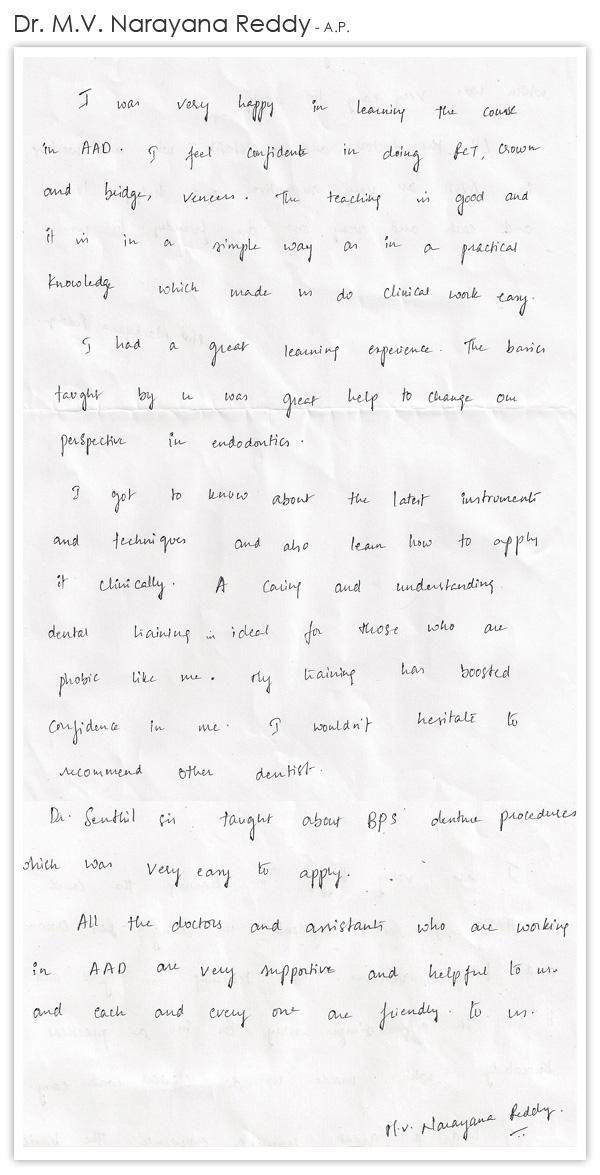 Dr. M.V. Narayana Reddy - A.P.
I was very happy in learning the course
in AAD. I feel confident in doing RCT, crown
and bridge, veneers. The teaching is good and
it is in a simple way as in a practical
knowledge which made us do clinical work easy.
I had a great learning experience. The basics
taught by u was great help to change our
perspective in endodontics.
I got to know about the latest instruments
and techniques and also learn how to apply
it clinically. A caring and understanding
dental training is ideal for those who are
phobic like me. My training has boosted
confidence in me. I wouldn't hesitate to
recommend other dentist.
Dr. Senthil sir taught about BPS denture procedures
which was very easy to apply.
All the doctors and assistants who are working
in AAD are very supportive and helpful to us.
and each and every one are friendly. to us.
M.V. Narayana Reddy.